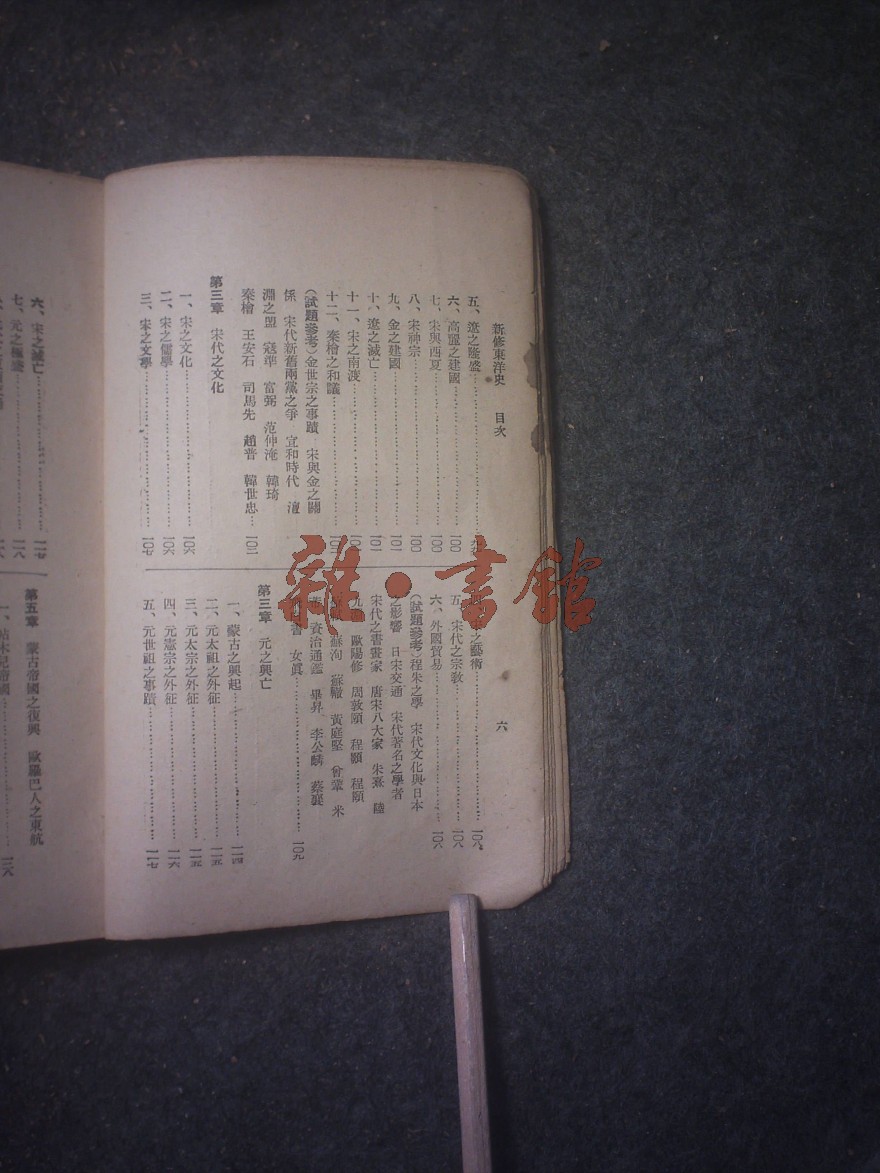 新修東洋史 目次
六
五、遼之隆盛
六、高麗之建國 一〇〇
七、宋與西夏 一〇〇
八、宋神宗 一〇〇
九、金之建國 一〇一
十、遼之滅亡 一〇一
十一、宋之南渡
十二、秦檜之和議
（試題參考）金世宗之事蹟 宋與金之關
係 宋代新舊兩黨之爭 宣和時代 澶
淵之盟 寇準 富弼 范仲淹 韓琦
秦檜 王安石 司馬先 趙普 韓世忠 一〇二
第三章 宋代之文化
一、宋之文化 一〇六
二、宋之儒學 一〇六
三、宋之文學 一〇七
之藝術 一〇八
五、宋代之宗教 一〇八
六、外國貿易 一〇八
（試題參考）程朱之學 宋代文化與日本
之影響 日宋交通 宋代著名之學者
宋代之書畫家 唐宋八大家 朱熹 陸
九 歐陽修 周敦頤 程顥 程頤
蘇洵 蘇轍 黃庭堅 曾鞏 米
資治通鑑 畢昇 李公麟 蔡襄
書 女真 一〇九
第三章 元之興亡
一、蒙古之興起 一一四
二、元太祖之外征 一一五
三、元太宗之外征 一一五
四、元憲宗之外征 一一六
五、元世祖之事蹟 一一七
六、宋之滅亡 一一七
七、元之極盛 一一八
第五章 蒙古帝國之復興 歐羅巴人之東航
一、帖木兒帝國 一二六
雜·書館